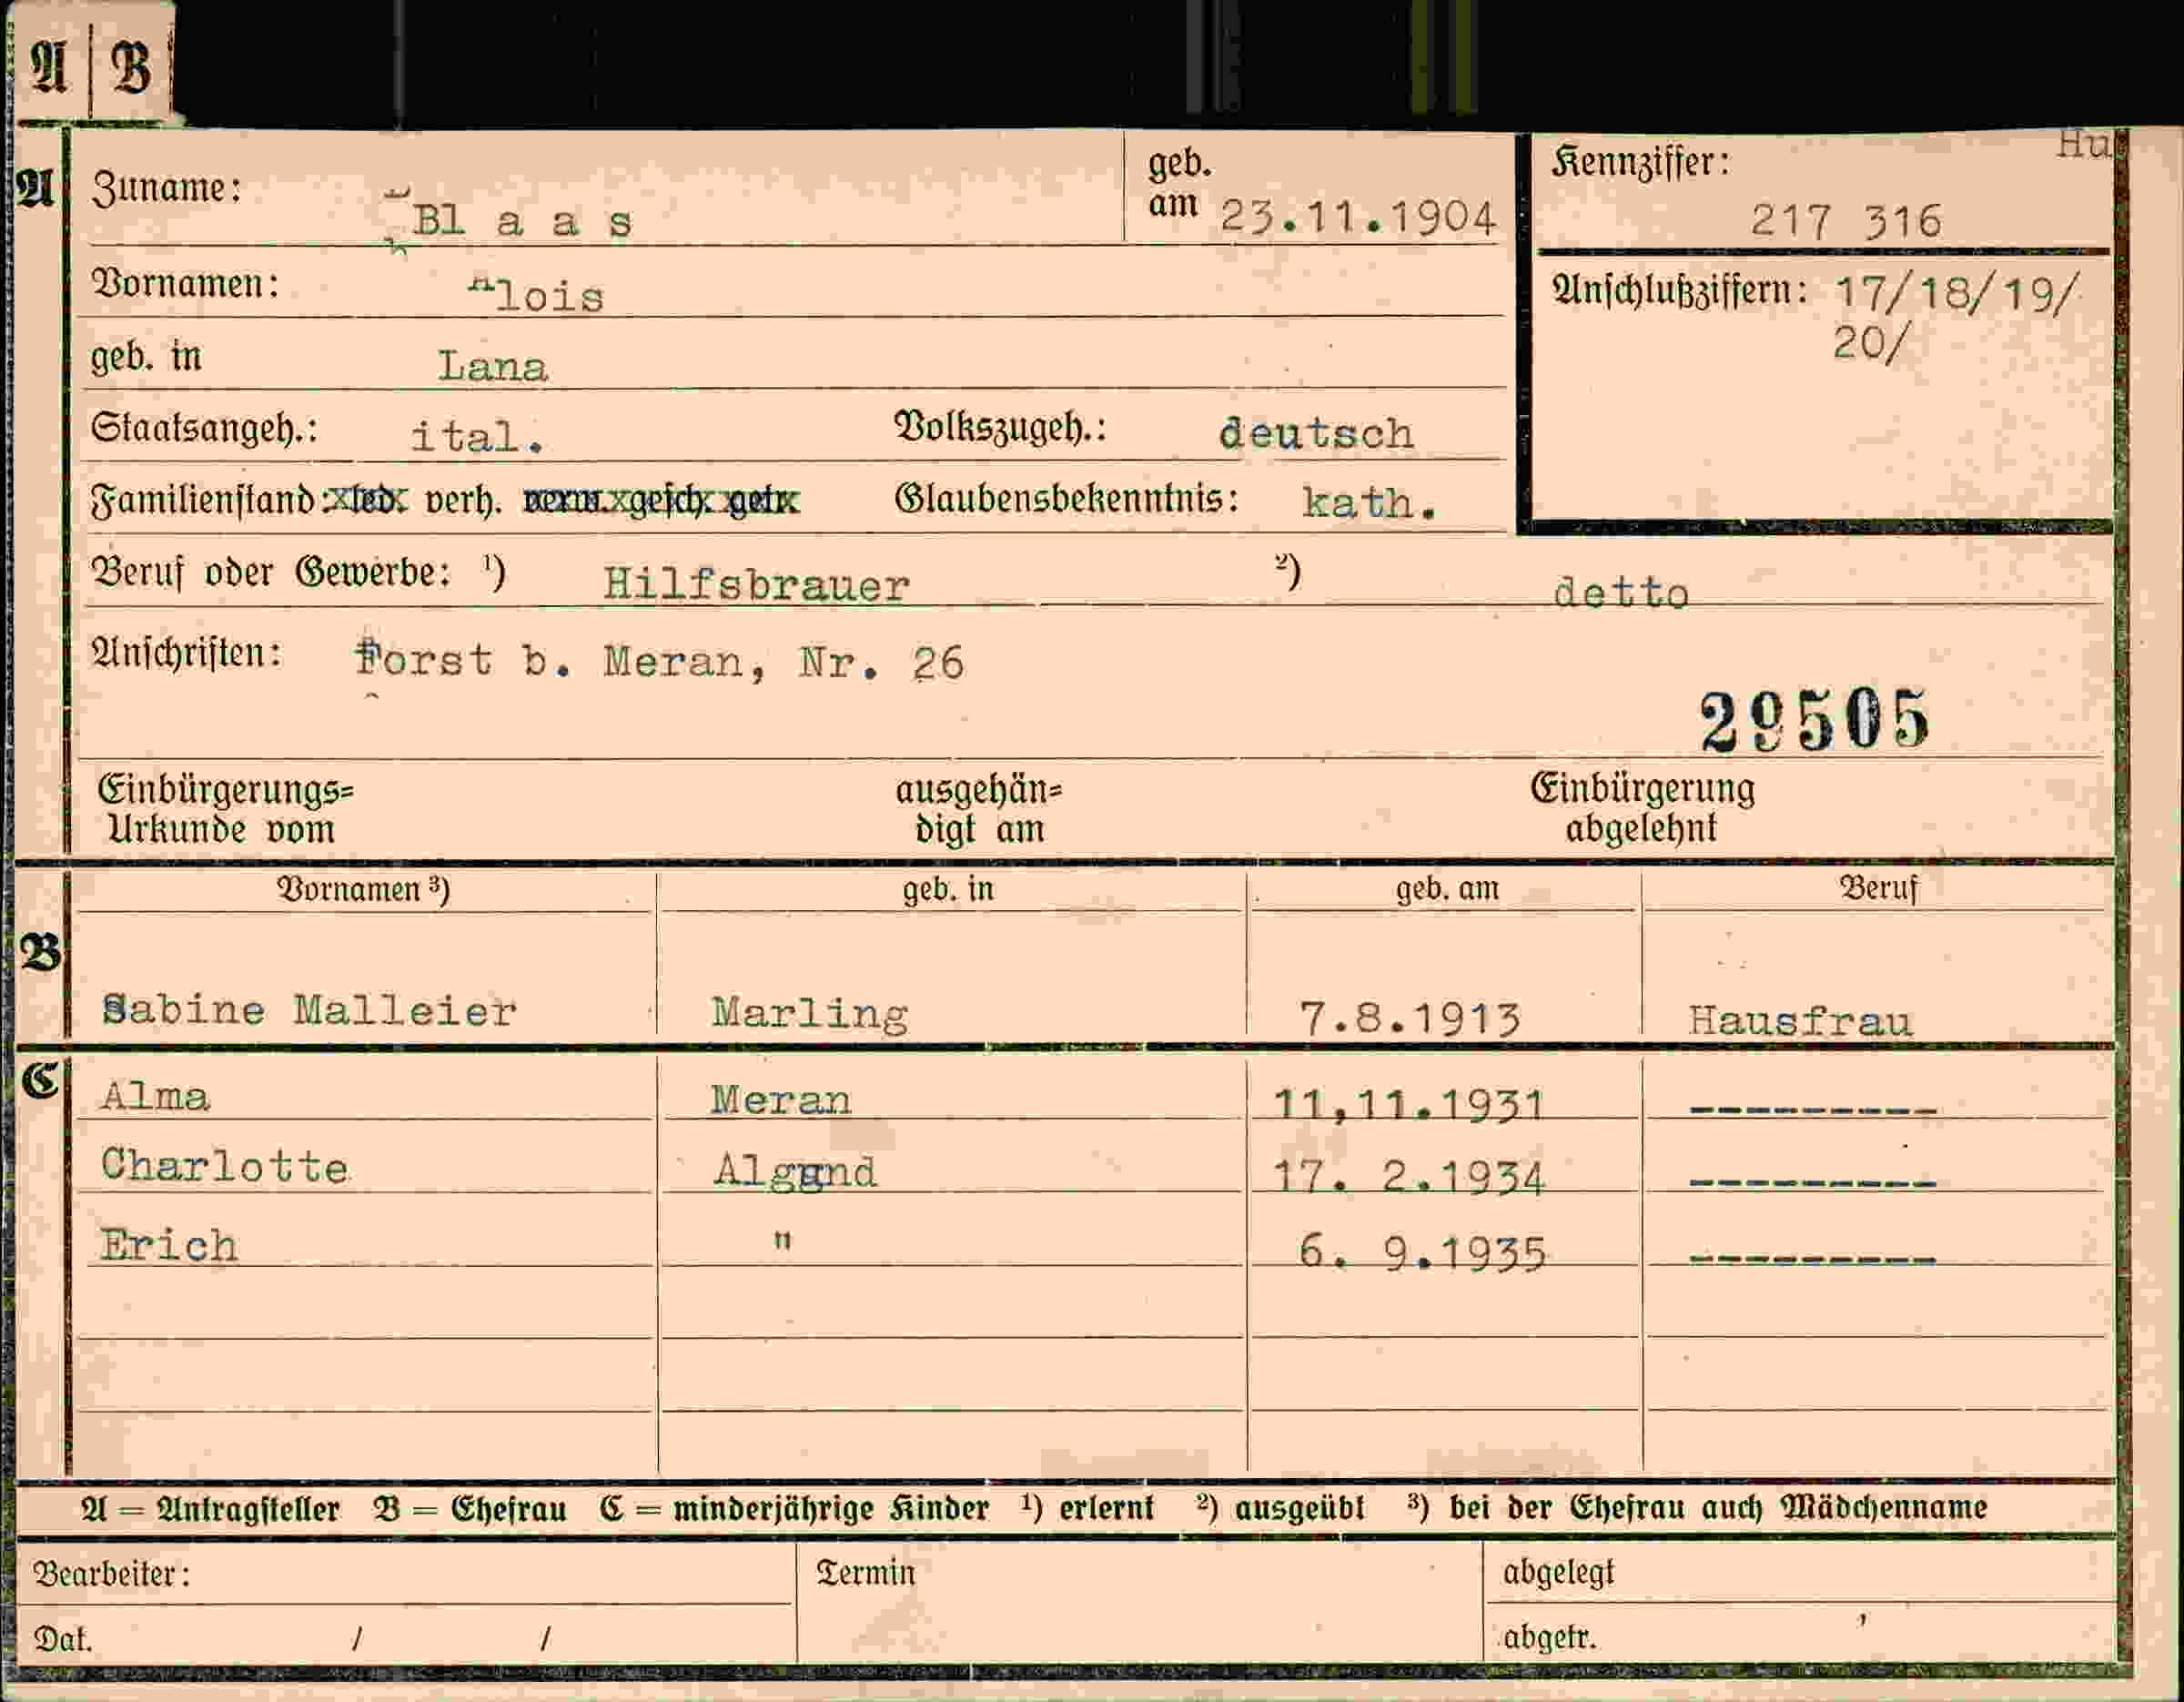 A | B
Hu
A Zuname: Bl a a s geb. am 23.11.1904
Kennziffer: 217 316
Vornamen: Alois
Anschlußziffern: 17/18/19/
20/
geb. in Lana
Staatsangeh.: ital. Volkszugeh.: deutsch
Familienstand: led. verh. verw. gesch. getr. Glaubensbekenntnis: kath.
Beruf oder Gewerbe: ¹) Hilfsbrauer ²) detto
Anschriften: Forst b. Meran, Nr. 26
29505
Einbürgerungs= ausgehän= Einbürgerung
Urkunde vom digt am abgelehnt
Vornamen ³) geb. in geb. am Beruf
B
Sabine Malleier Marling 7.8.1913 Hausfrau
C Alma Meran 11,11.1931 ---------
Charlotte Algund 17. 2.1934 ---------
Erich " 6. 9.1935 ---------
A = Antragsteller B = Ehefrau C = minderjährige Kinder ¹) erlernt ²) ausgeübt ³) bei der Ehefrau auch Mädchenname
Bearbeiter: Termin abgelegt
Dat. / / abgetr.